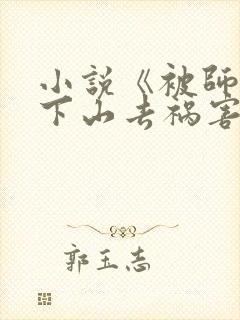 小説《被師
下山去禍害
郭玉志